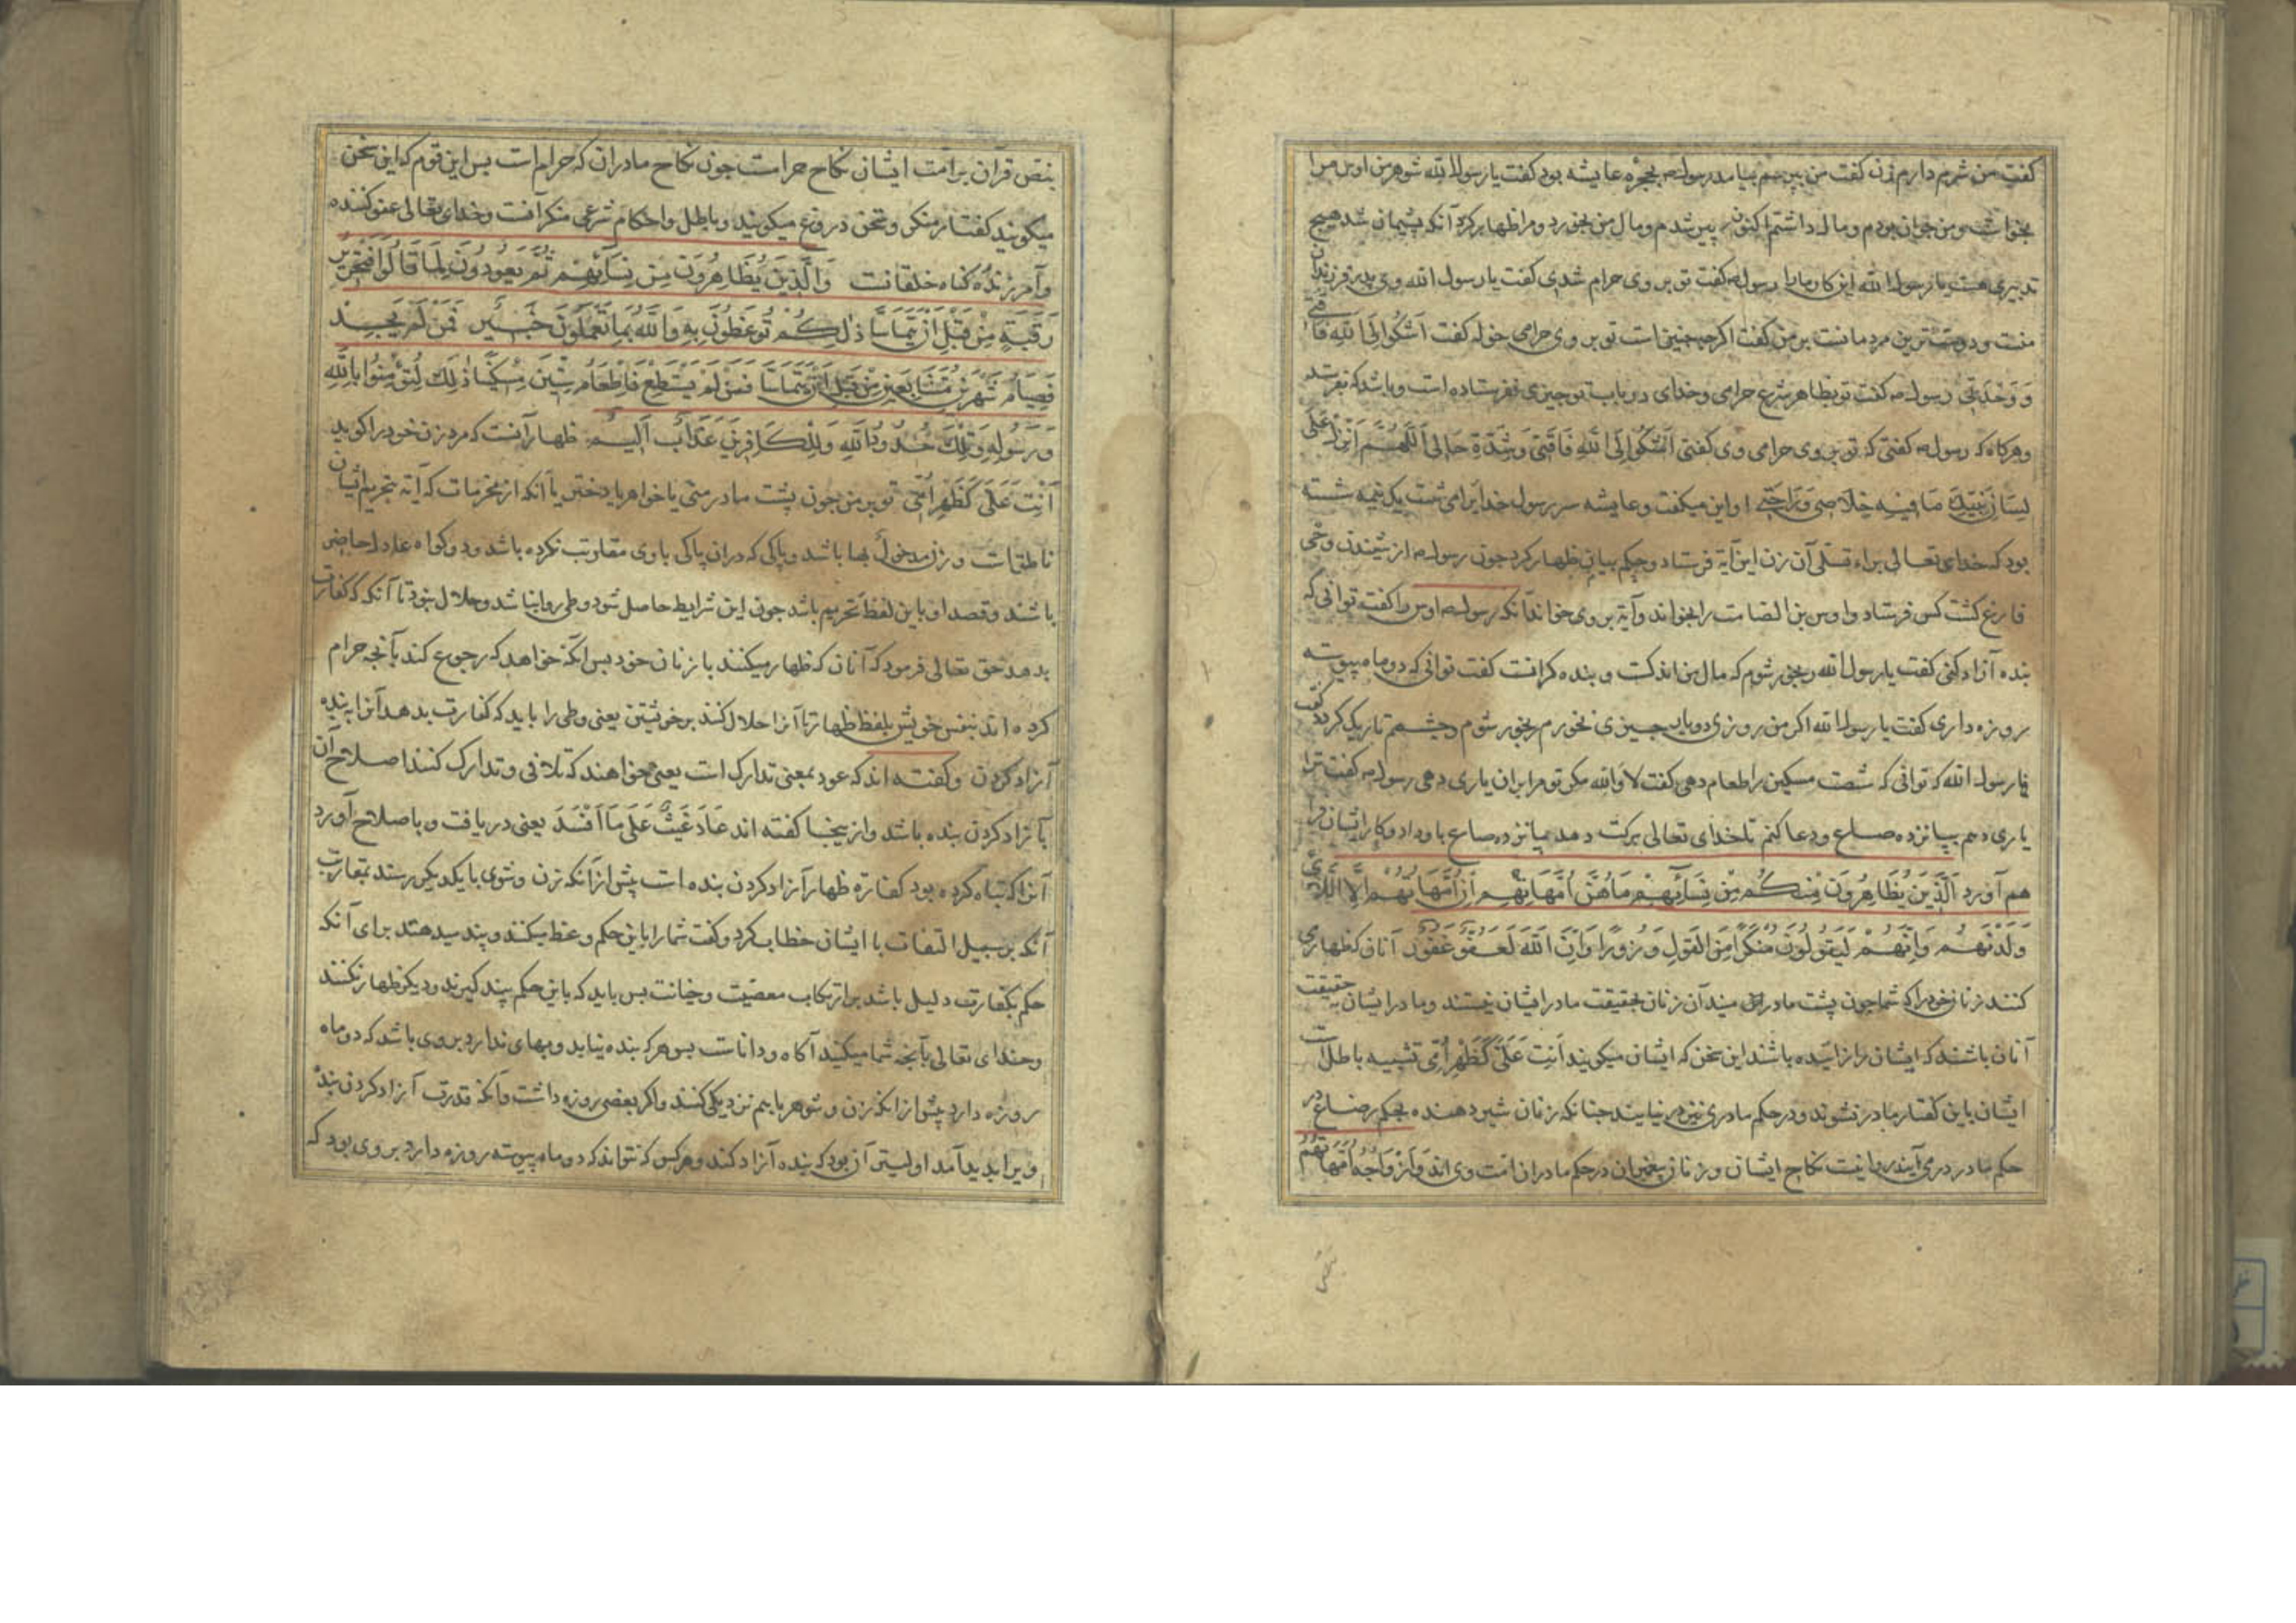 کفت من شرم دارم زن کفت من بپرسم بیامد رسول بحجره عایشه بود کفت یا رسول الله شوهر من اوس مرا
بخواست و من جوان بودم و مال داشتم اکنون پیر شدم و مال من بخورد و مرا ظهار کرد آنکه پشیمان شد هیچ
تدبیری هست یا رسول الله این کار ما را رسول کفت تو بر وی حرام شدی کفت یا رسول الله وی پدر فرزندان
منست و دوسترین مردمانست بر من کفت اکر چه چنین است تو بر وی حرامی خوله کفت اشکوا الی الله فاقتی
و وحدتی رسول کفت تو بظاهر شرع حرامی و خدای در باب تو چیزی نفرستاده است و باشد که بفرستد
و هرکاه که رسول کفتی که تو بر وی حرامی وی کفتی اشکوا الی الله فاقتی و شدة حالی اللهم انزل علی
لسان نبیک ما فیه خلاصی و راحتی او این میکفت و عایشه سر رسول خدا برامی شست یک نیمه شسته
بود که خدای تعالی براء تسلی آن زن این آیة فرستاد و حکم بیان ظهار کرد چون رسول از شنیدن وحی
فارغ کشت کس فرستاد و اوس بن الصامت را بخواند و آیة بر وی خواند آنکه رسول اوس را کفت توانی که
بنده آزاد کنی کفت یا رسول الله رنجور شوم که مال من اندکست و بنده کرانست کفت توانی که دو ماه پیوسته
روزه داری کفت یا رسول الله اکر من روزی دو بار چیزی نخورم رنجور شوم و چشمم تاریک کردد کفت
یا رسول الله که توانی که شصت مسکین را طعام دهی کفت لا والله مکر تو مرا بران یاری دهی رسول کفت ترا
یاری دهم بپانزده صاع و دعا کنم تا خدای تعالی برکت دهد پانزده صاع باو داد و کار ایشان فرا
هم آورد اَلَّذِینَ یُظَاهِرُونَ مِنْکُمْ مِنْ نِسَآئِهِمْ مَاهُنَّ اُمَّهَاتِهِمْ اِنْ اُمَّهَاتُهُمْ اِلَّا اللَّائی
وَلَدْنَهُمْ وَاِنَّهُمْ لَیَقُولُونَ مُنْکَرًا مِنَ الْقَولِ وَ زُورًا وَاِنَّ اللّهَ لَعَفُوٌّ غَفُورٌ آنان که ظهار می
کنند زنان خود را که شما چون پشت مادران میند آن زنان بحقیقت مادر ایشان نیستند و مادر ایشان به حقیقت
آنان باشند که ایشان را زاییده باشند این سخن که ایشان میکویند اَنْتِ عَلَیَّ کَظَهْرِ اُمّی تشبیه باطلست
ایشان باین کفتار مادر نشوند و در حکم مادری نیز در نیایند چنانکه زنان شیر دهنده بحکم رضاع در
حکم مادر در می آیند روا نیست نکاح ایشان و زنان پیغمبران در حکم مادران امت وی اند وَاَزْوَاجُهُ اُمَّهَاتُهُمْ
بنص قرآن بر امت ایشان نکاح حرامست چون نکاح مادران که حرام است پس این قوم که این سخن
میکویند کفتار منکر و سخن دروغ میکویند و باطل و احکام شرعی منکر آنست و خدای تعالی عفو کننده
و آمرزندۀ کناه خلقانست وَالَّذِینَ یُظَاهِرُونَ مِنْ نِسَآئِهِمْ ثُمَّ یَعُودُونَ لِمَا قَالُوا فَتَحْرِیرُ
رَقَبَةٍ مِنْ قَبْلِ اَنْ یَتَمَاسَّا ذٰلِکُمْ تُوعَظُونَ بِهِ وَاللّهُ بِمَا تَعْمَلُونَ خَبِیرٌ فَمَنْ لَمْ یَجِدْ
فَصِیَامُ شَهْرَیْنِ مُتَتَابِعَیْنِ مِنْ قَبْلِ اَنْ یَتَمَاسَّا فَمَنْ لَمْ یَسْتَطِعْ فَاِطْعَامُ سِتِّینَ مِسْکِینًا ذٰلِکَ لِتُؤْمِنُوا بِاللّهِ
وَ رَسُولِهِ وَتِلْکَ حُدُودُ اللّهِ وَلِلْکَافِرِینَ عَذَابٌ اَلِیمٌ ظهار آنست که مرد زن خود را کوید
اَنْتِ عَلَیَّ کَظَهْرِ اُمّی تو بر من چون پشت مادر منی یا خواهر یا دختر یا آنکه از محرمات که آیه بتحریم ایشان
ناطقست و زن مدخول بها باشد و پاکی که دران پاکی با وی مقاربت نکرده باشد و دو کواه عادل حاضر
باشند و قصد او باین لفظ تحریم باشد چون این شرایط حاصل شود وطی روا نباشد و حلال نبود تا آنکه که کفارت
بدهد حق تعالی فرمود که آنان که ظهار میکنند با زنان خود پس آنکه خواهد که رجوع کند بآنچه حرام
کرده اند بنفس خویش بلفظ ظهار تا آنرا حلال کنند بر خویشتن یعنی وطی را باید که کفارت بدهد آنرا ببنده
آزاد کردن و کفته اند که عود بمعنی تدارک است یعنی خواهند که تلافی و تدارک کنند اصلاح آن
بآزاد کردن بنده باشد و از ینجا کفته اند عَادَ غَیْثٌ عَلَی مَا اَفْسَدَ یعنی دریافت و باصلاح آورد
آنرا که تباه کرده بود کفارۀ ظهار آزاد کردن بنده است پیش از آنکه زن و شوی با یکدیکر رسند بمقاربت
آنکه بر سبیل التفات با ایشان خطاب کرد و کفت شما را باین حکم وعظ میکنند و پند میدهند برای آنکه
حکم بکفارت دلیل باشد بر ارتکاب معصیت و خیانت پس باید که باین حکم پند کیرند و دیکر ظهار نکنند
و خدای تعالی بآنچه شما میکنید آکاه و داناست پس هرکه بنده نیابد و بهای ندارد بر وی باشد که دو ماه
روزه دارد پیش از آنکه زن و شوهر با هم نزدیکی کنند و اکر بعضی روزه داشت و آنکه قدرت آزاد کردن بنده
ویرا پدید آمد اولیتر آن بود که بنده آزاد کند و هرکس که نتواند که دو ماه پیوسته روزه دارد بر وی بود که